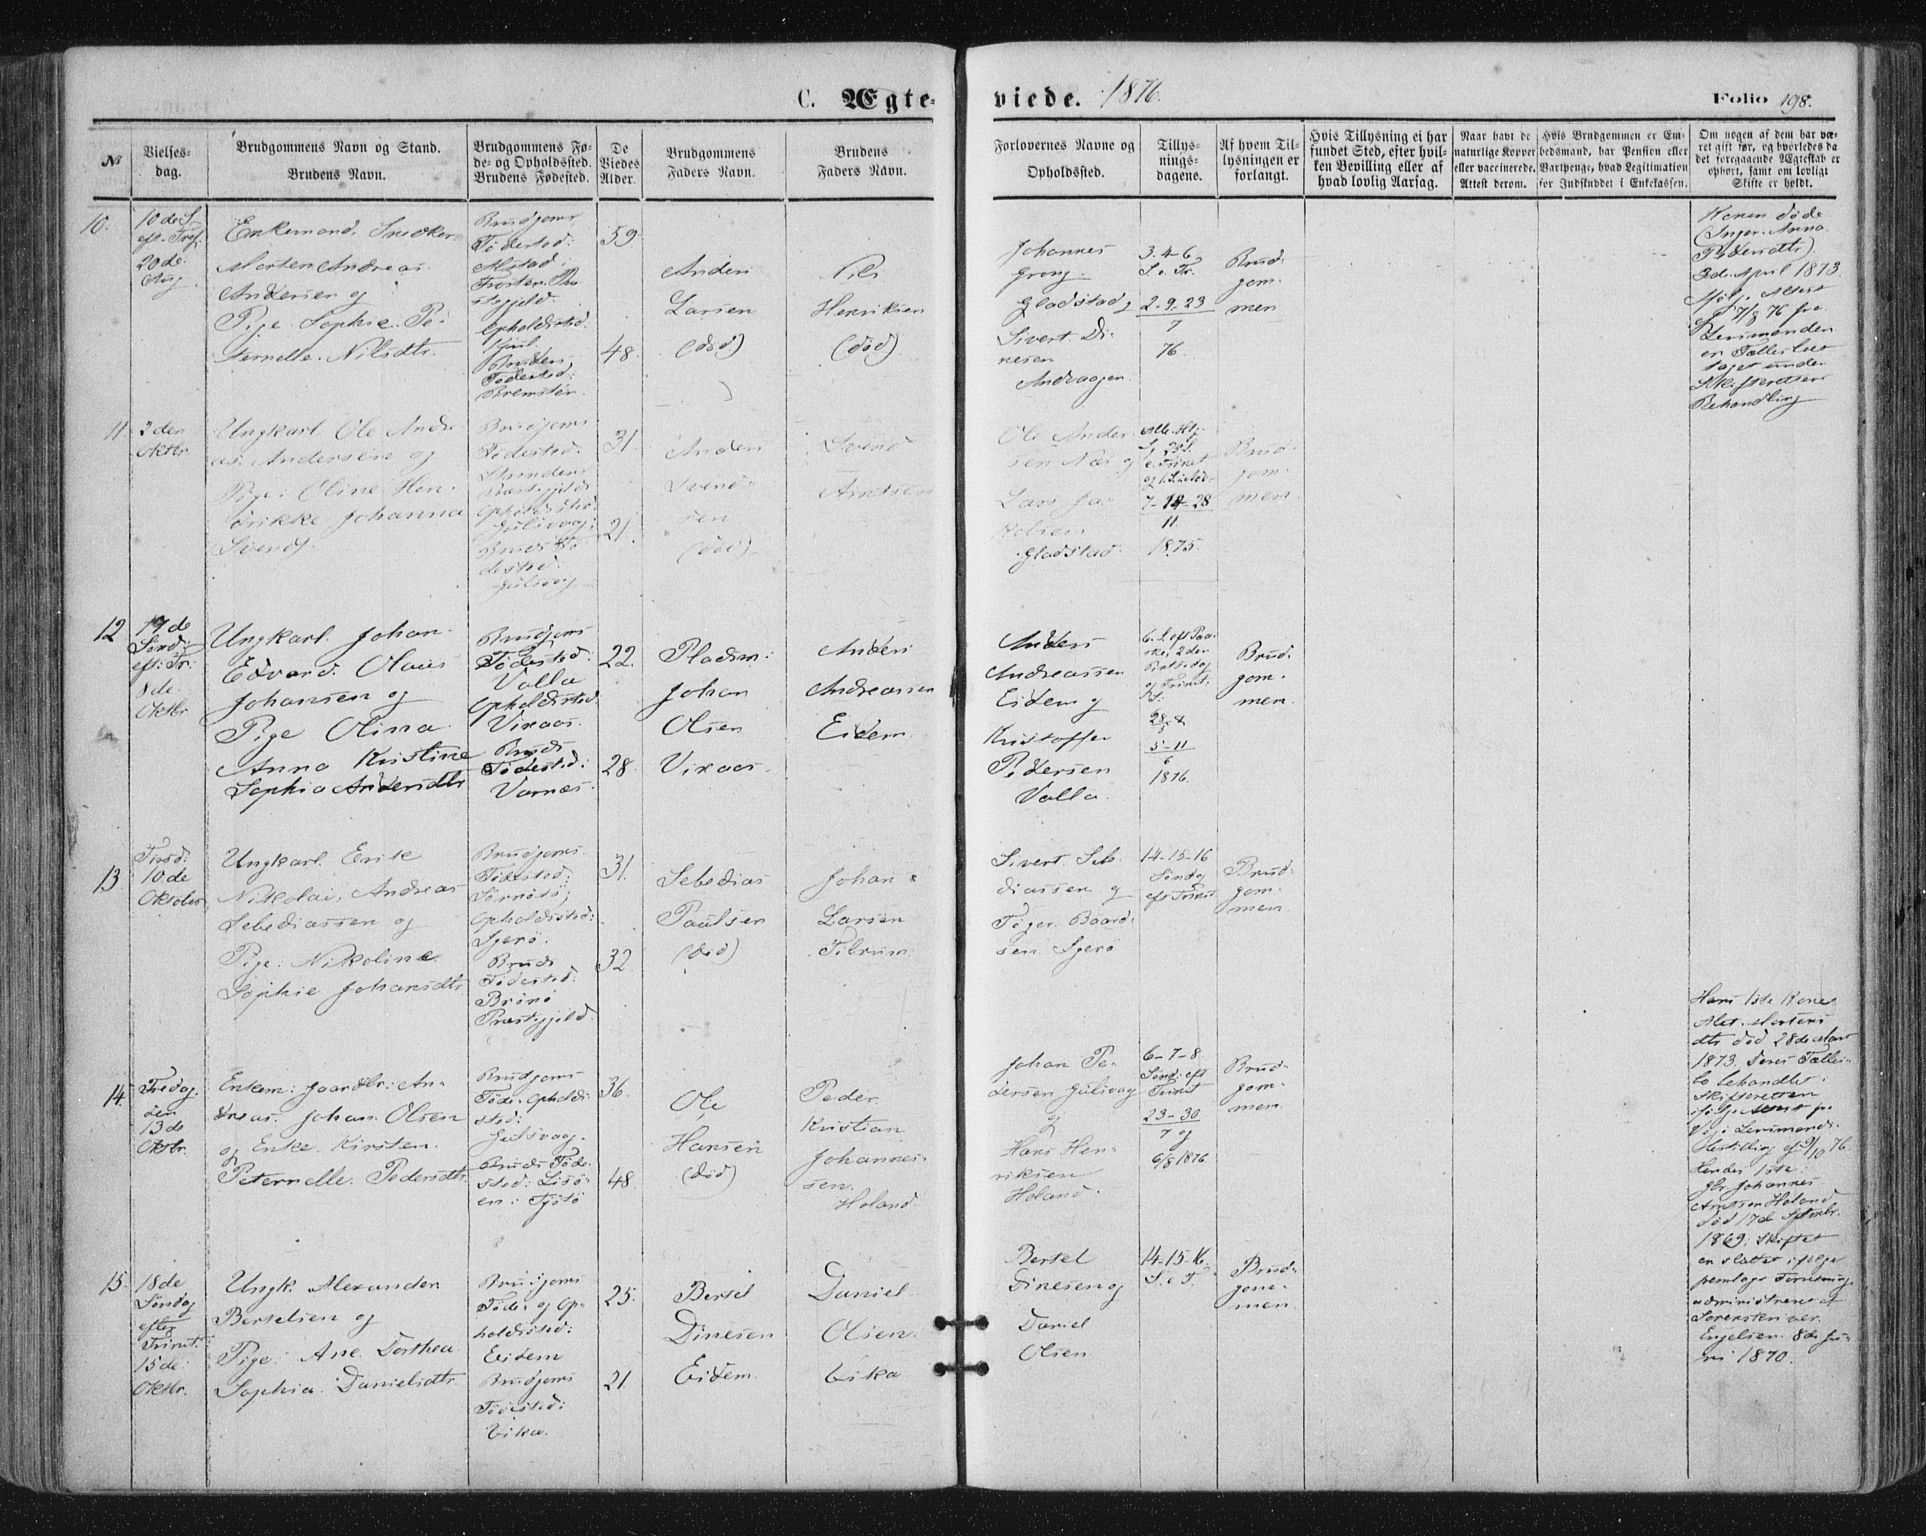 C. Ægte-
viede. 1876.
Folio 198.
№
Vielses-
dag.
Brudgommens Navn og Stand.
Brudens Navn.
Brudgommens Fø-
de- og Opholdssted.
Brudens Fødested.
De
Viedes
Alder.
Brudgommens
Faders Navn.
Brudens
Faders Navn.
Forlovernes Navne og
Opholdssted.
Tillys-
nings-
dagene.
Af hvem Til-
lysningen er
forlangt.
Hvis Tillysning ei har
fundet Sted, efter hvil-
ken Bevilling eller af
hvad lovlig Aarsag.
Naar havt de
naturlige Kopper
eller vaccinerede.
Attest derom.
Hvis Brudgommen er Em-
bedsmand, har Pension eller
Vartpenge, hvad Legitimation
for Indskuddet i Enkekassen.
Om nogen af dem har væ-
ret gift før, og hvorledes da
det foregaaende Ægteskab er
ophørt, samt om lovligt
Skifte er holdt.
10.
10de S.
eft. Tref.
20de
Aug
Enkemand. Snedker
Morten Andreas
Andersen og
Pige. Sophie. Pe-
ternelle. Nilsdtr.
Brudgoms
Fødested:
Alstad;
Frosten. Præ
stegjeld.
Opholdssted.
Bruden,
Fødested:
Bremstein
59.
48.
Anders
Larsen
(død)
Nils
Henriksen
(død)
Johannes
Grong.
Gladstad,
Sivert Di-
nesen
Andvaagen.
3-4-6
S. e. Tr.
2-9-23
7
76.
Brud-
gom-
men
Konen døde
(Inger. Anna
Pedersdtr)
3de April 1873.
Ifølg. Attest
7/8 76 fra
Lensmanden
er Fælles boet
taget under
Skifterettens
Behandling
11.
2den
Oktbr
Ungkarl Ole Andre-
as. Andersen og
Pige: Oline Hen-
drikke Johanna
Svends.
Brudgoms
Fødested:
Strinden
Præstegjeld
Opholdssted
Gulsvaag;
Bruds Fø-
dested:
Gulsvag
31.
21.
Anders
Svend-
sen
(død)
Svend
Arntsen
Ole Ander-
sen Næs og
Lars Ja-
kobsen
Gladstad.
Alle. Hlg.
S. 23 S.
e. Trinit
7-14-28
11
1875.
Brud-
gom-
men.
12
17de
Sønd:
eft: Tr.
8de
Oktbr
Ungkarl. Johan
Edvard. Olaus
Johansen og
Pige Olina
Anna Kristine
Sophia Andersdtr
Brudgoms
Fødested:
Valla
Opholdssted
Vixaas.
Bruds
Fødested:
Varnæs.
22.
28.
Pladsm:
Johan
Olsen
Vixaas.
Anders
Andreassen
Eidem.
Anders
Andreassen
Eidem og
Kristoffer
Pedersen
Valla.
6. S. eft Paa-
ske. 2den
Pintsedag
og Trinit:
S.
28-
5
5-11
6
1876.
Brud-
gom-
men.
13
Tirsd:
10de
Oktober
Ungkarl. Erik
Nikolai, Andreas
Sebediassen og
Pige: Nikoline
Sophie Johansdtr
Brudgoms.
Fødested:
Opholdssted:
Igerø.
Bruds
Fødested:
Brønø
Præstegjeld.
31.
32.
Sebedias
Paulsen
(død)
Johan
Larsen
Tilrum.
Sivert. Seb-
diassen og
Tøger. Baard-
sen. Igerø
14-15-16
Søndag
eft Trinit
Brud-
gom-
men.
14.
Fredag.
den
13de
Oktbr.
Enkem: Gaardbr: An-
dreas. Johan. Olsen
og Enke. Kirsten.
Peternelle. Pedersdtr.
Brudgoms
Føde. Opholds-
sted:
Gulsvaag.
Bruds Føde-
sted:
en: Tjøtø
36.
48.
Ole
Hansen
(død)
Peder
Kristian
Johannes-
sen.
Holand
Johan Pe-
dersen Gulsvag
og
Hans Hen-
riksen
Holand.
6-7-8
Sønd: eft
Trinit
23-30
7 og
6/8 1876
Brud-
gom-
men.
Hans 1ste Kone
Alet. Mortens
dtr død 28de Mart
1873. Deres Fælles-
bo behandlet i
Skifteretten
ifølg. Attest fr.
Lensmands.
9/10 76.
Hendes 1ste:
gbr. Johannes
Arntsen Holand
død 17de Septmbr.
1869; Skiftet
en sluttet ifølge
administreret af
Sorenskriver
Engelsen. 8de Ju-
ni 1870.
15.
18de
Søndag
efter
Trinit.
15de:
Oktbr.
Ungk. Alexander
Bertelsen og
Pige: Ane. Dorthea
Sophia. Danielsdtr.
Brudgoms
Føde- og Op-
holdssted:
Eidem
Brudgoms
Fødested:
Vika.
25.
21.
Bertel
Dinesen
Eidem.
Daniel
Olsen.
Vika
Bertel
Dinesen og
Daniel
Olsen.
14-15-16
S. e. T.
Brud-
gom-
men.